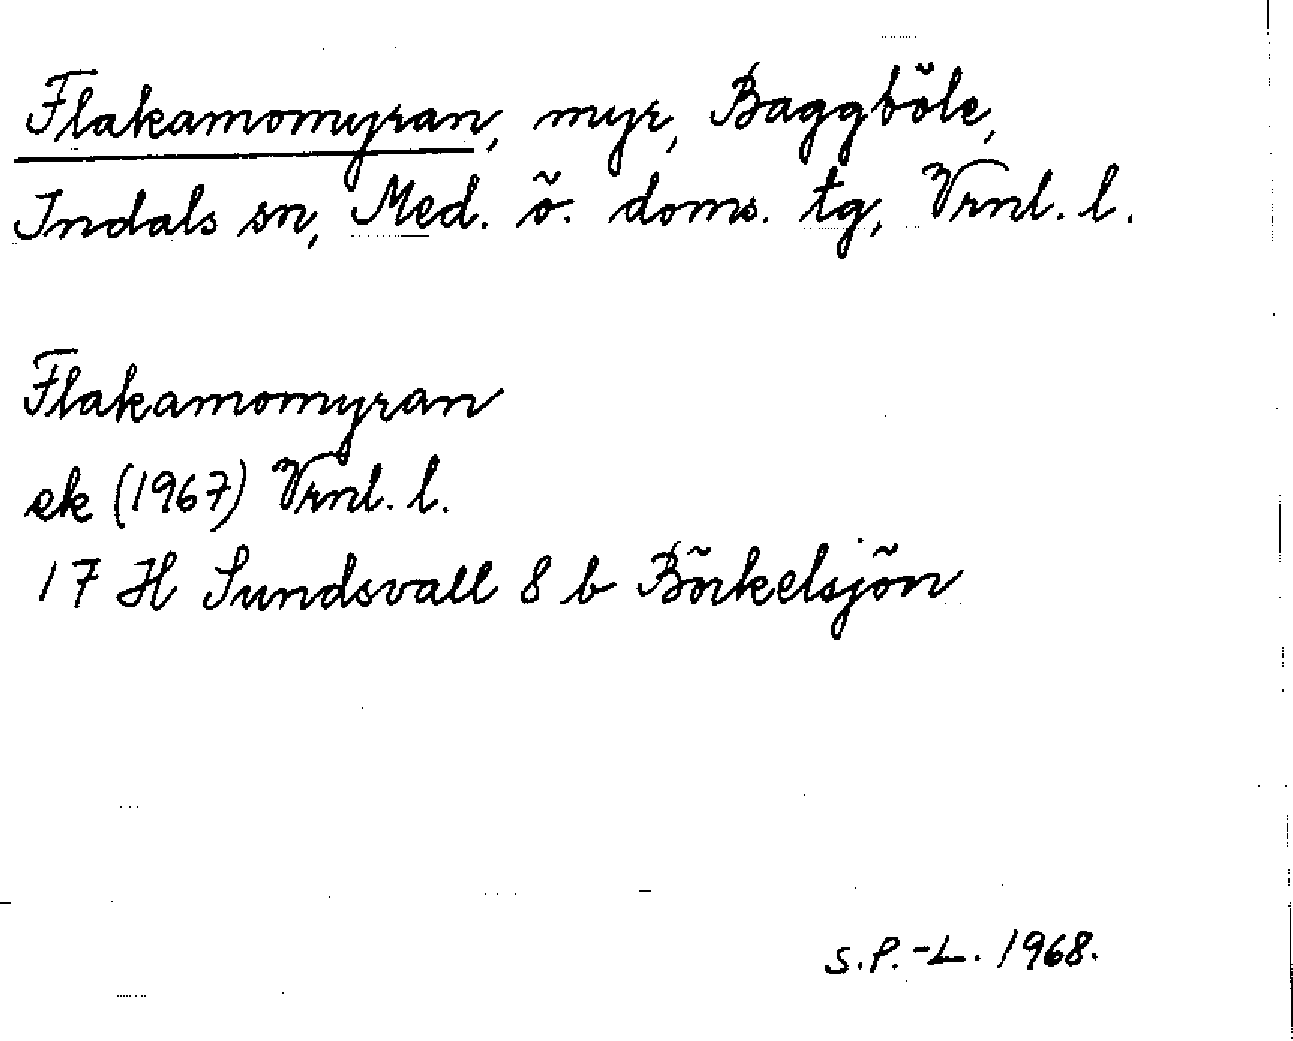 Flakamomyran, myr, Baggböle,
Indals sn, Med. ö. doms. tg, Vrnl. l.
Flakamomyran
ek (1967) Vrnl. l.
17 H Sundsvall 8 b Börkelsjön
S.P.-L. 1968.